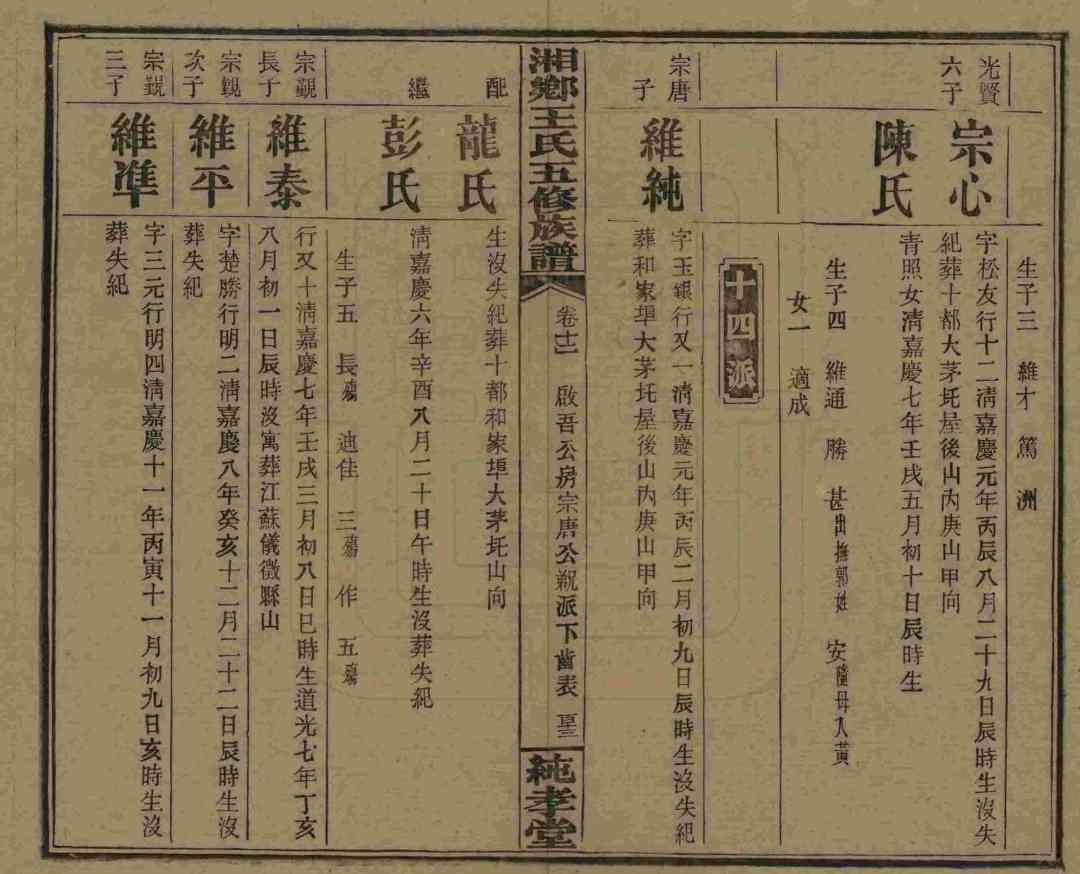 生子三 維才 篤 洲
光賢六子
宗心
字松友行十二淸嘉慶元年丙辰八月二十九日辰時生沒失
紀葬十都大茅圫屋後山內庚山甲向
陳氏
青照女淸嘉慶七年壬戌五月初十日辰時生
生子四 維通 勝 甚出撫郭姓 安隨母入黃
女一 適成
十四派
宗唐子
維純
字玉銀行又一淸嘉慶元年丙辰二月初九日辰時生沒失紀
葬和家埠大茅圫屋後山內庚山甲向
湘鄉王氏五修族譜
卷十二 啟吾公房宗唐公觀派下齒表
純孝堂
配
龍氏
生沒失紀葬十都和家埠大茅圫山向
繼
彭氏
淸嘉慶六年辛酉八月二十日午時生沒葬失紀
生子五 長殤 迪佳 三殤 作 五殤
宗觀長子
維泰
行又十淸嘉慶七年壬戌三月初八日巳時生道光七年丁亥
八月初一日辰時沒寓葬江蘇儀徵縣山
宗觀次子
維平
字楚勝行明二淸嘉慶八年癸亥十二月二十二日辰時生沒
葬失紀
宗觀三子
維準
字三元行明四淸嘉慶十一年丙寅十一月初九日亥時生沒
葬失紀